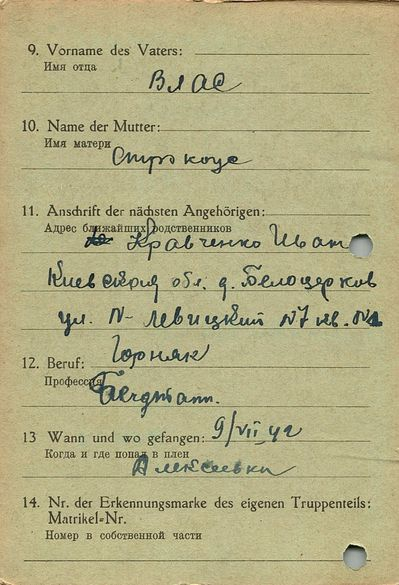 9. Vorname des Vaters:
Имя отца
Влас
10. Name der Mutter:
Имя матери
11. Anschrift der nächsten Angehörigen:
Адрес ближайших родственников
Кравченко Иван
Киевская обл. д. Белоцерков
ул. N-Левицкий N7 кв. N1
12. Beruf: Горняк
Профессия
Bergmann.
13 Wann und wo gefangen: 9/VII 42
Когда и где попал в плен
14. Nr. der Erkennungsmarke des eigenen Truppenteils:
Matrikel-Nr.
Номер в собственной части